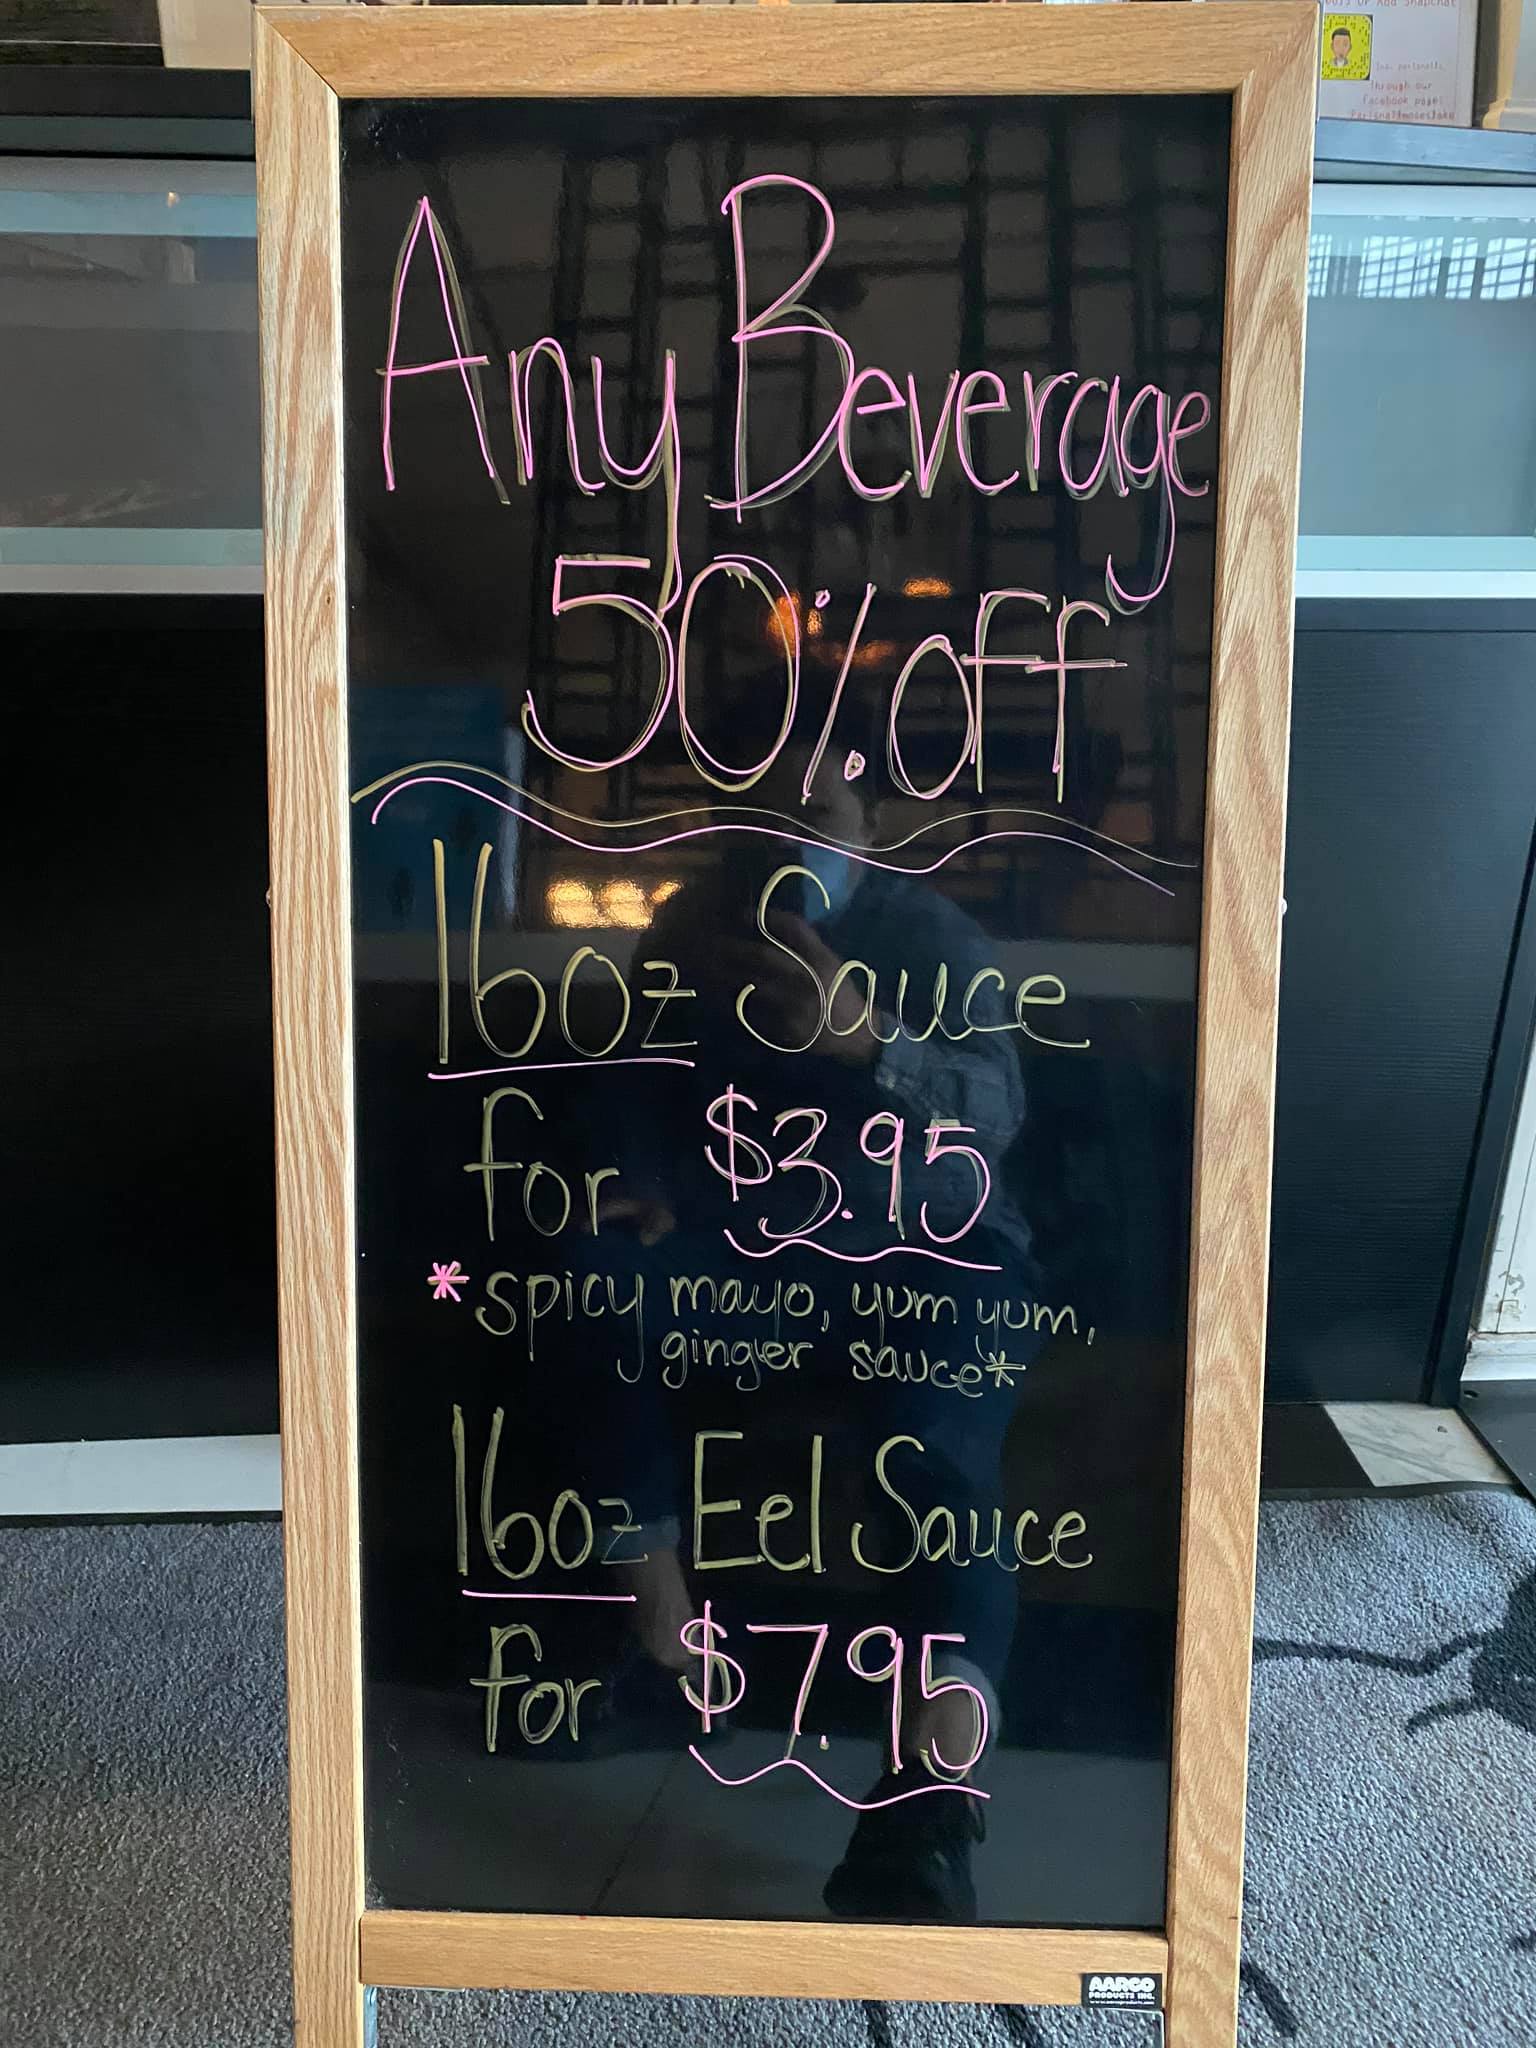 Any Beverage
50% off
16oz Sauce
for $3.95
*spicy mayo, yum yum,
ginger sauce*
16oz Eel Sauce
for $7.95
AARCO
PRODUCTS INC.
or Add Snapchat
Through our
facebook page: